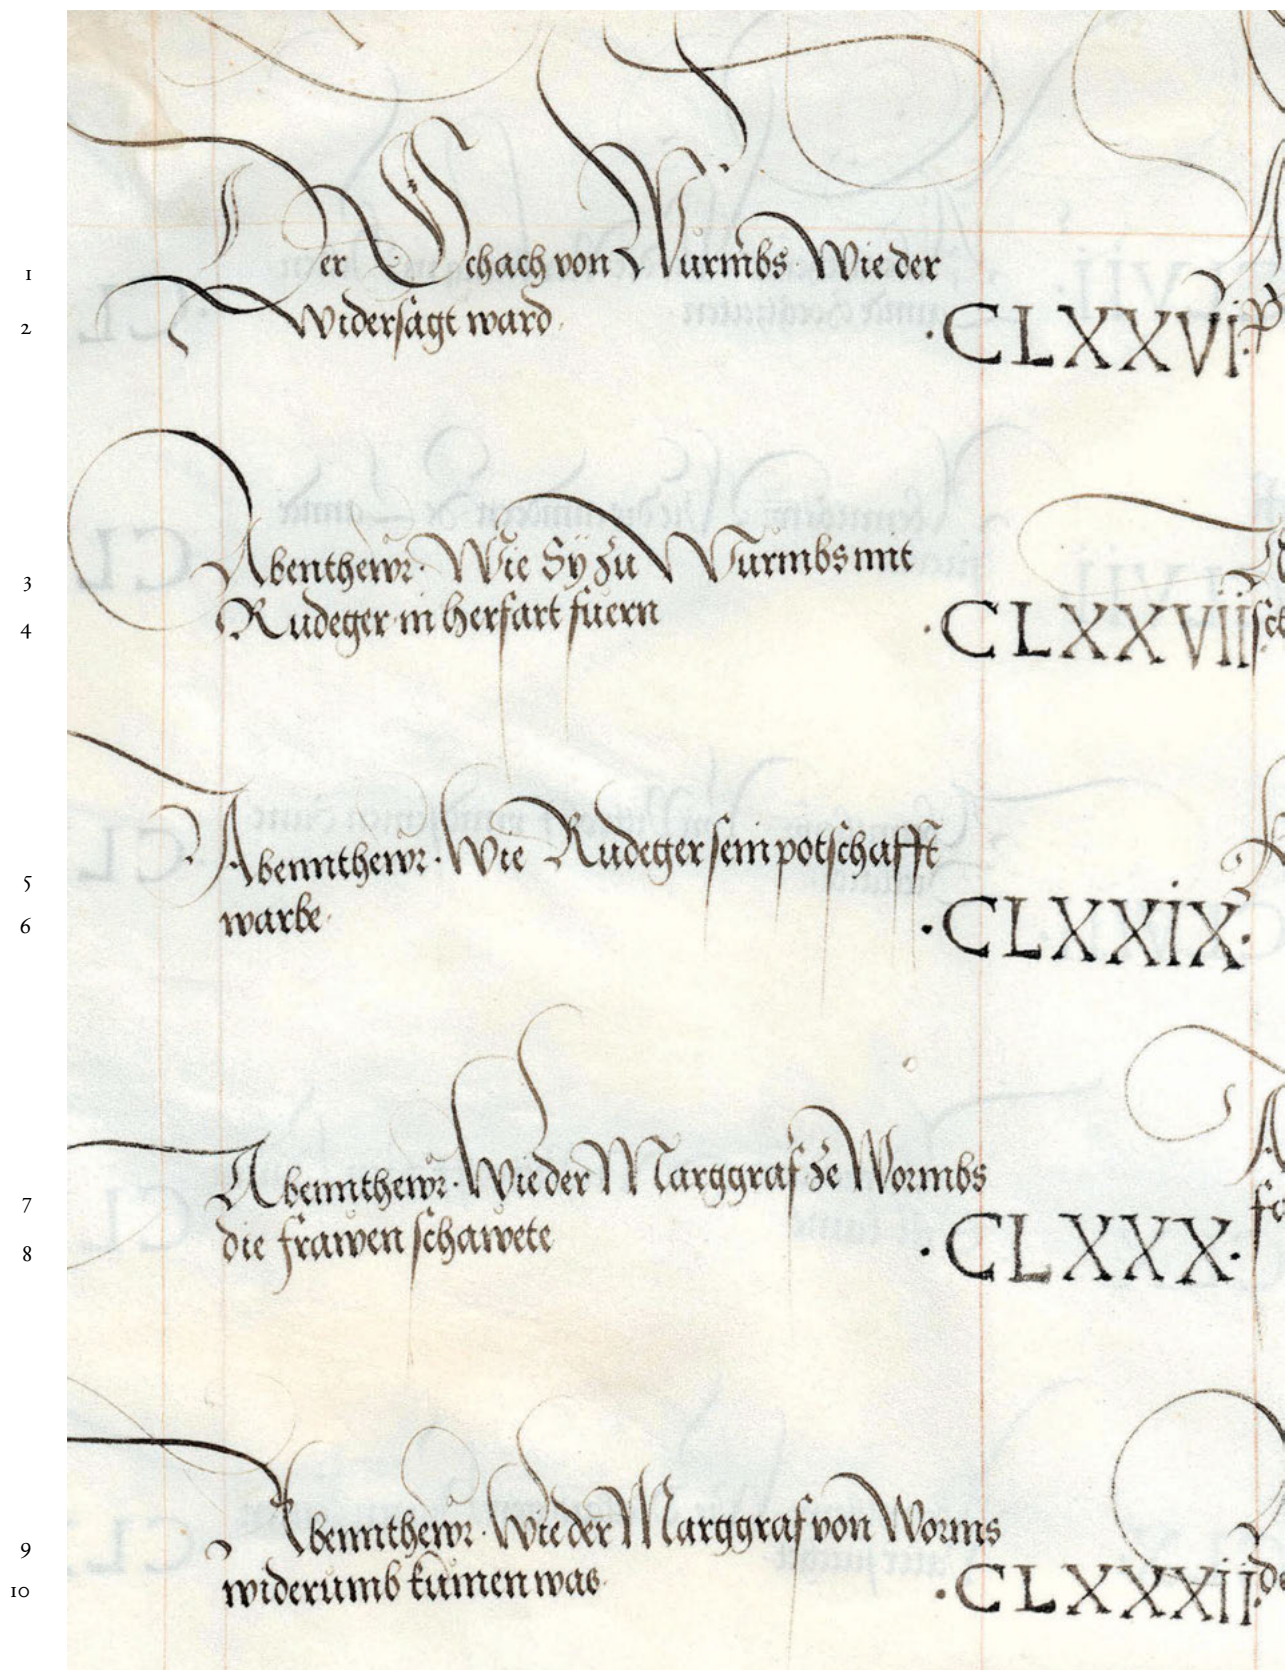 1 Der Schach von Wurmbs Wie der
2 Widersagt ward. ·CLXXVI·
3 Abenthewr· Wie Sy zu Wurmbs mit
4 Rudeger in herfart fuern ·CLXXVII
5 Abennthewr· Wie Rudeger sein potschafft
6 warbe· ·CLXXIX·
7 Abennthewr· Wie der Marggraf ze Wormbs
8 die frawen schawete ·CLXXX·
9 Abennthewr· Wie der Marggraf von Worms
10 widerumb kumen was· ·CLXXXII·